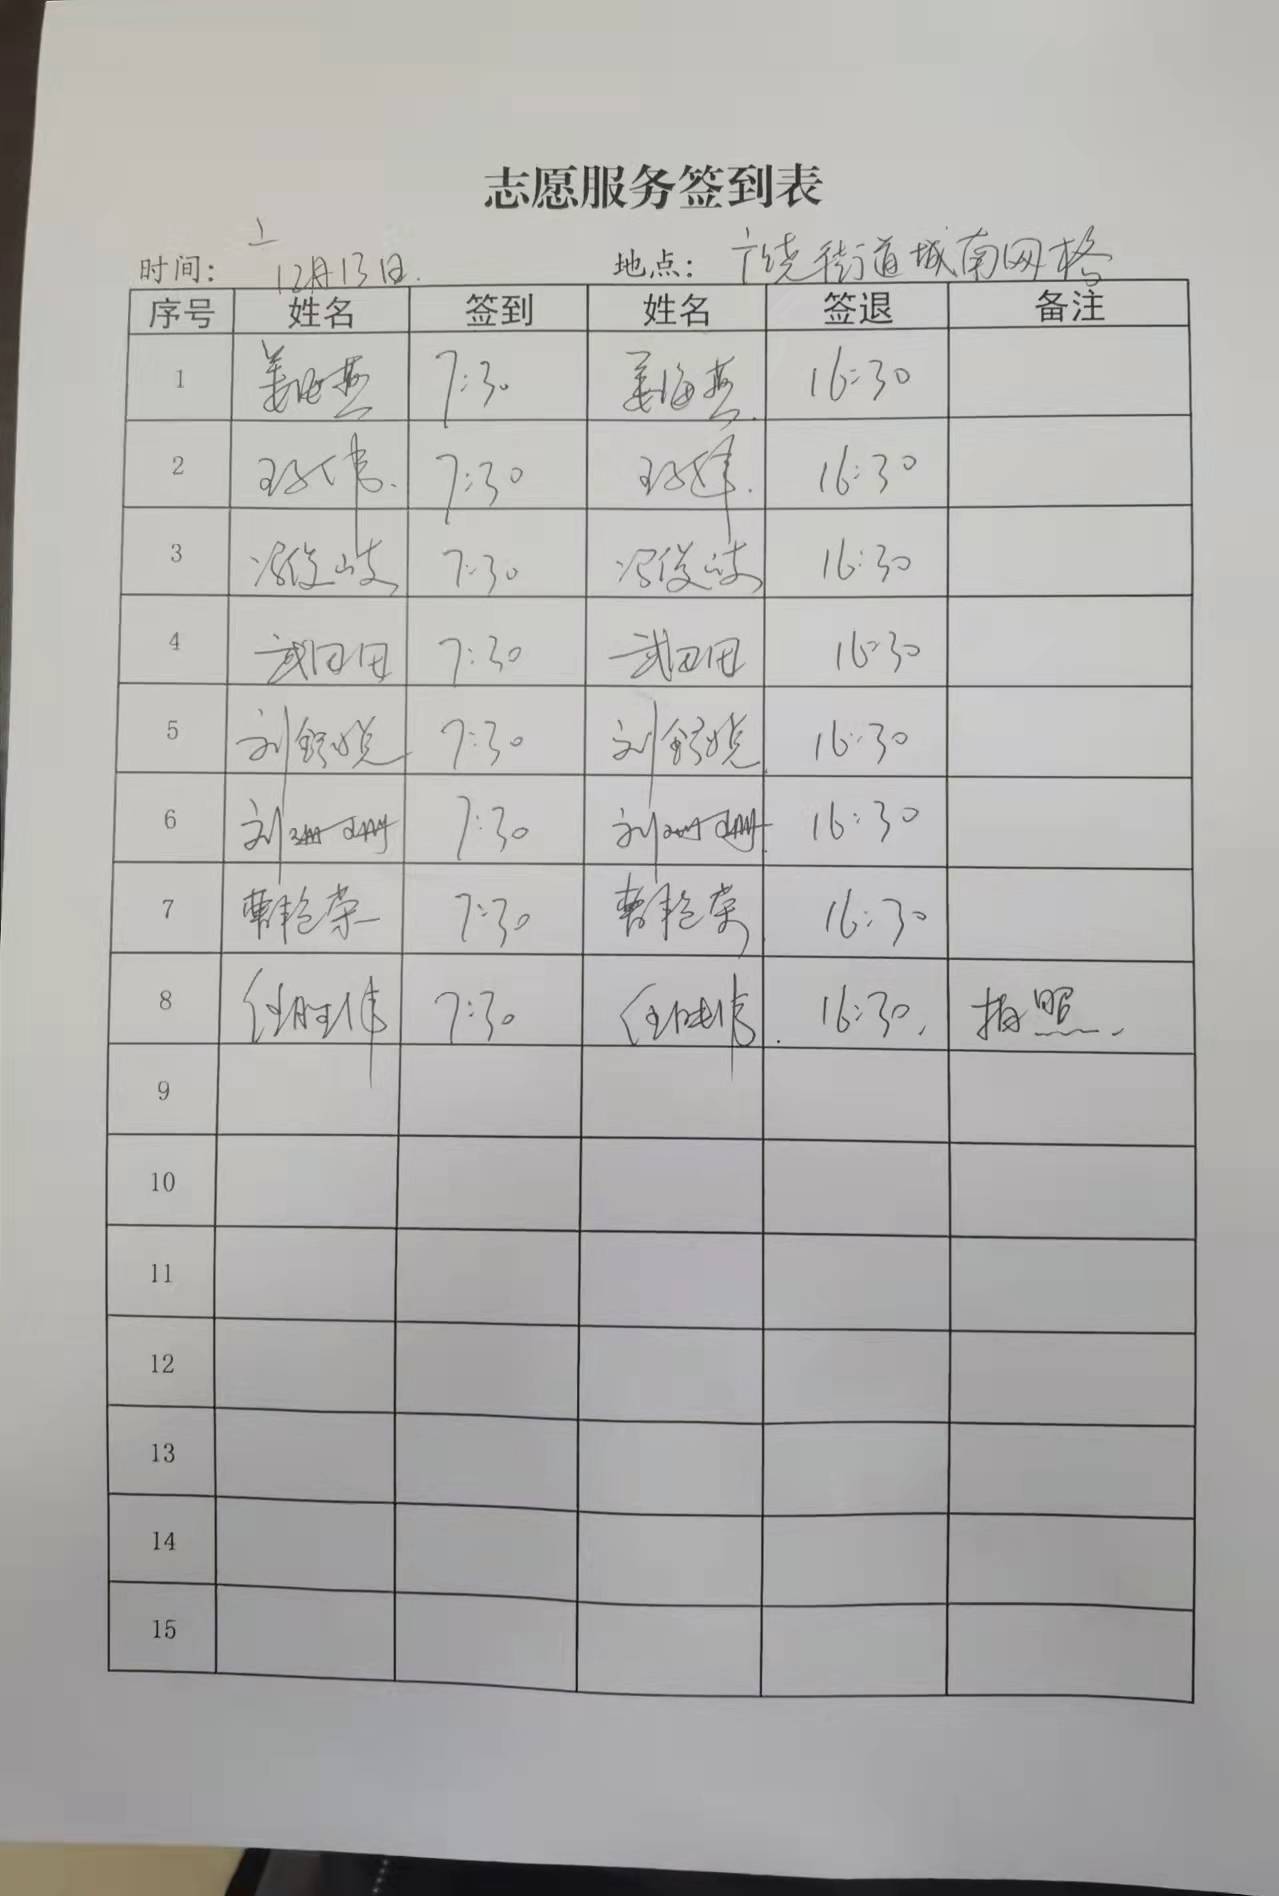 志愿服务签到表
时间： 12月13日. 地点： 广饶街道城南网格
序号 姓名 签到 姓名 签退 备注
1 姜海燕 7:30 姜海燕 16:30
2 7:30 16:30
3 冯俊岐 7:30 冯俊岐 16:30
4 武田田 7:30 武田田 16:30
5 刘 7:30 刘 16:30
6 刘珊珊 7:30 刘珊珊 16:30
7 曹艳荣 7:30 曹艳荣 16:30
8 任胜伟 7:30 任胜伟 16:30 拍照
9
10
11
12
13
14
15